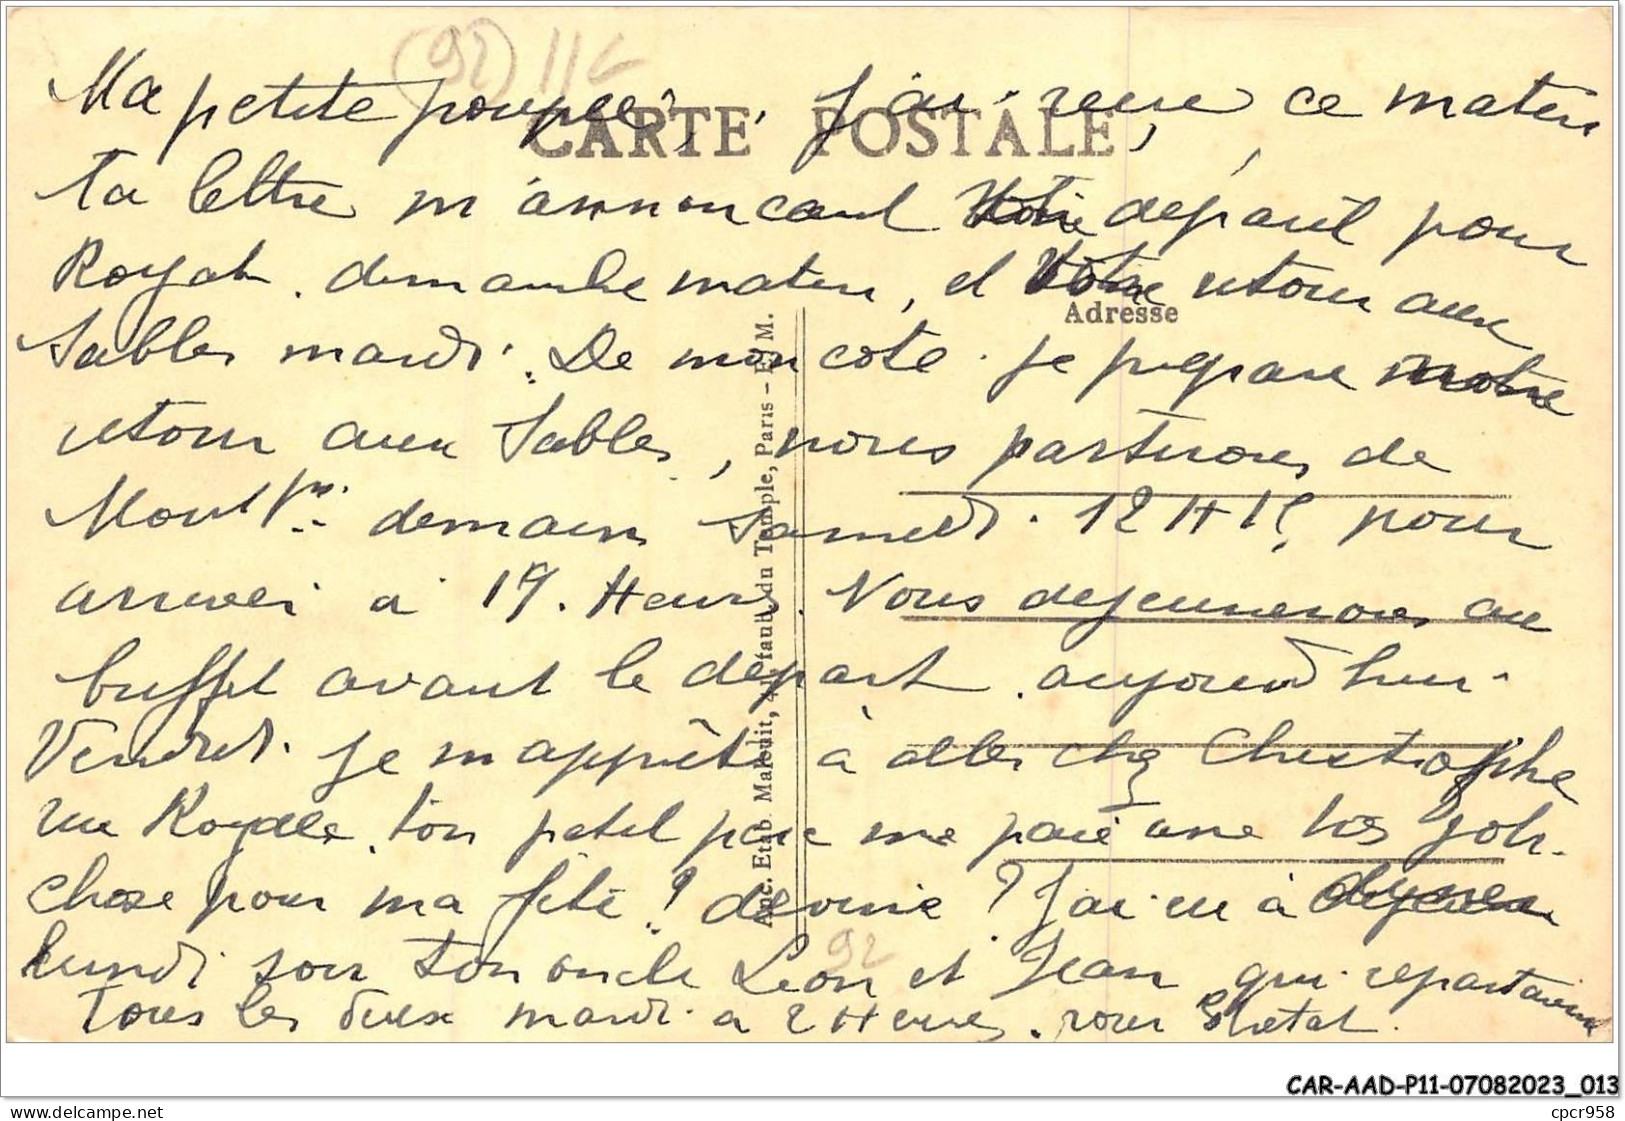 (92) 11
CARTE POSTALE
Ma petite poupée, j'ai reçu ce matin
ta lettre m'annoncant Votre départ pour
Royat demanche matin, et Votre retour aux
Adresse
Sables mardi. De mon coté je prépare notre
retour aux Sables, nous partirons de
Montp^er demain Samedi. 12 H 15 pour
arriver à 19. Heures. Nous dejeunerons au
buffet avant le départ. aujourd'hui
Vendredi. je m'apprête à aller chez Christophe
rue Royale, ton petit père me paie une très jolie
chose pour ma fête! devine? J'ai eu à
Lundi soir ton oncle Léon et Jean qui repartaient
Tous les deux mardi à 2 Heures. pour
92
Anc. Etab. Malcuit, faub. du Temple, Paris - E. M.
CAR-AAD-P11-07082023_013
www.delcampe.net
cpcr958